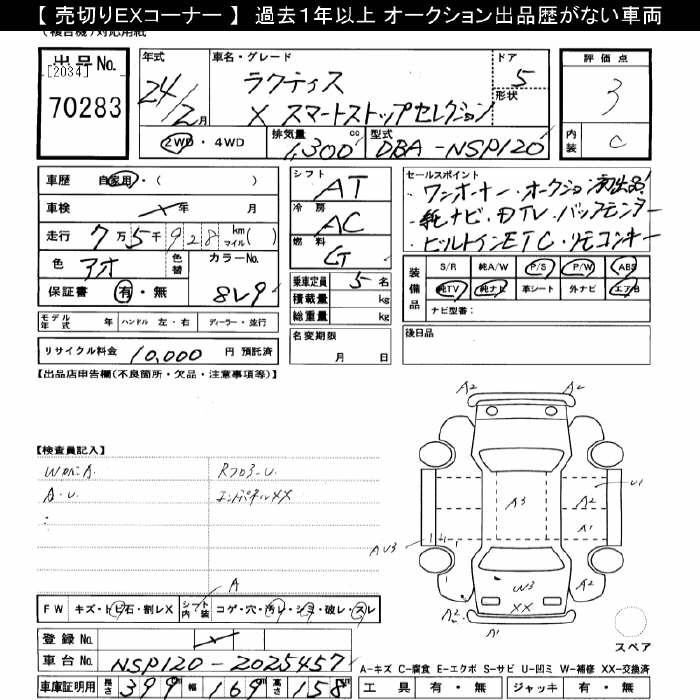 【 売切りEXコーナー 】 過去1年以上 オークション出品歴がない車両
(複合機)対応用紙
出品No.
[2034]
70283
年式
24/2月
車名・グレード
ラクティス
X スマートストップセレクション
ドア
5
形状
評価点
3
内装
C
2WD・4WD
排気量
1,300cc
型式
DBA-NSP120
車歴 自家用・( )
車検 年 月
走行 7万5千928 km マイル( )
色 アオ
色替
カラーNo.
8V9
保証書 有・無
シフト
AT
冷房
AC
燃料
G
乗車定員 5名
積載量 kg
総重量 kg
名変期限
月 日
セールスポイント
・ワンオーナー・オークション初出品!
・純ナビ・DTV・バックモニター
・ビルトインETC・リモコンキー
装備品
S/R 純A/W P/S P/W ABS
純TV 純ナビ 革シート 外ナビ エアB
ナビ型番:
後日品
モデル年式 年 ハンドル 左・右 ディーラー・並行
リサイクル料金 10,000 円 預託済
【出品店申告欄(不良箇所・欠品・注意事項等)】
【検査員記入】
A・U
A
FW キズ・トビ石・割レX
シート内装 コゲ・穴・汚レ・シミ・破レ・スレ
登録No.
車台No. NSP120-2025457
車庫証明用 長さ 399 幅 169 高さ 158
A2
A2
U1
A3
A2
A1
AU3
W3
XX
A2
A2
A1
スペア
A-キズ C-腐食 E-エクボ S-サビ U-凹ミ W-補修 XX-交換済
工具 有・無 ジャッキ 有・無